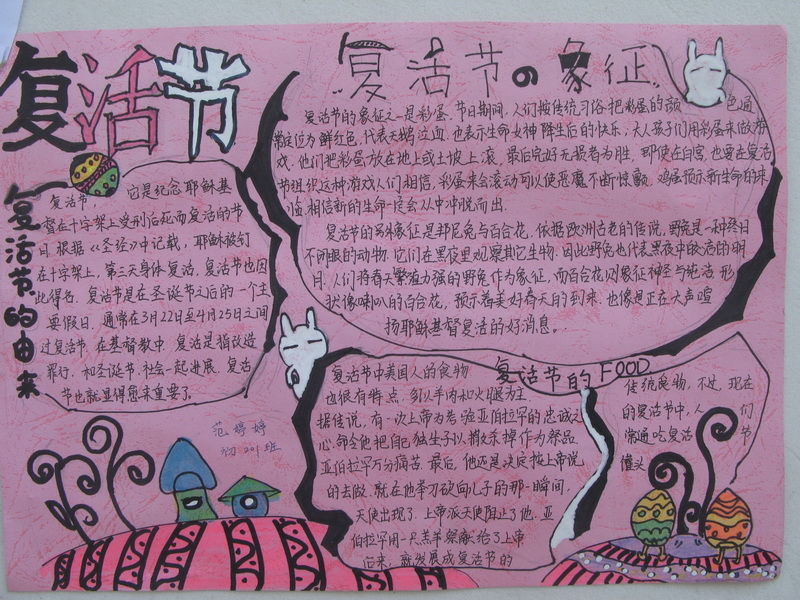 复活节
复活节的由来
复活节，它是纪念耶稣基
督在十字架上受刑后死而复活的节
日.根据《圣经》中记载，耶稣被钉
在十字架上，第三天身体复活，复活节也因
此得名.复活节是在圣诞节之后的一个主
要假日.通常在3月22日至4月25日之间
过复活节.在基督教中.复活是指改造
罪行.和圣诞节.社会一起进展.复活
节也就显得愈来重要了.
范婷婷
初201班
复活节の象征
复活节的象征之一是彩蛋.节日期间，人们按传统习俗把彩蛋的颜色通
常定位为鲜红色，代表天鹅泣血.也表示生命女神降生后的快乐，大人孩子们用彩蛋来做游
戏.他们把彩蛋放在地上或土坡上滚，最后完好无损者为胜.即使在白宫，也要在复活
节组织这种游戏人们相信，彩蛋来会滚动可以使恶魔不断惊颤.鸡蛋预示新生命的来
临，相信新的生命一定会从中冲脱而出.
复活节的另外象征是邦尼兔与百合花，依据欧洲古老的传说，野兔是一种终日
不闭眼的动物.它们在黑夜里观察其它生物.因此野兔也代表黑夜中皎洁的明
月.人们将春天繁殖力强的野兔作为象征，而百合花则象征神圣与纯洁 形
状像喇叭的百合花，预示着美好春天的到来.也像是正在大声喧
扬耶稣基督复活的好消息。
复活节的FOOD
复活节中美国人的食物
也很有特点.多以羊肉和火腿为主
据传说，有一次上帝为考验亚伯拉罕的忠诚之
心.命令他把自己独生子以撒杀掉作为祭品
亚伯拉罕万分痛苦.最后.他还是决定按上帝说
的去做.就在他举刀砍向儿子的那一瞬间，
天使出现了.上帝派天使阻止了他.亚
伯拉罕用一只羔羊祭献给了上帝
后来.就发展成复活节的
传统食物，不过.现在
的复活节中，人们
常通吃复活节
馒头